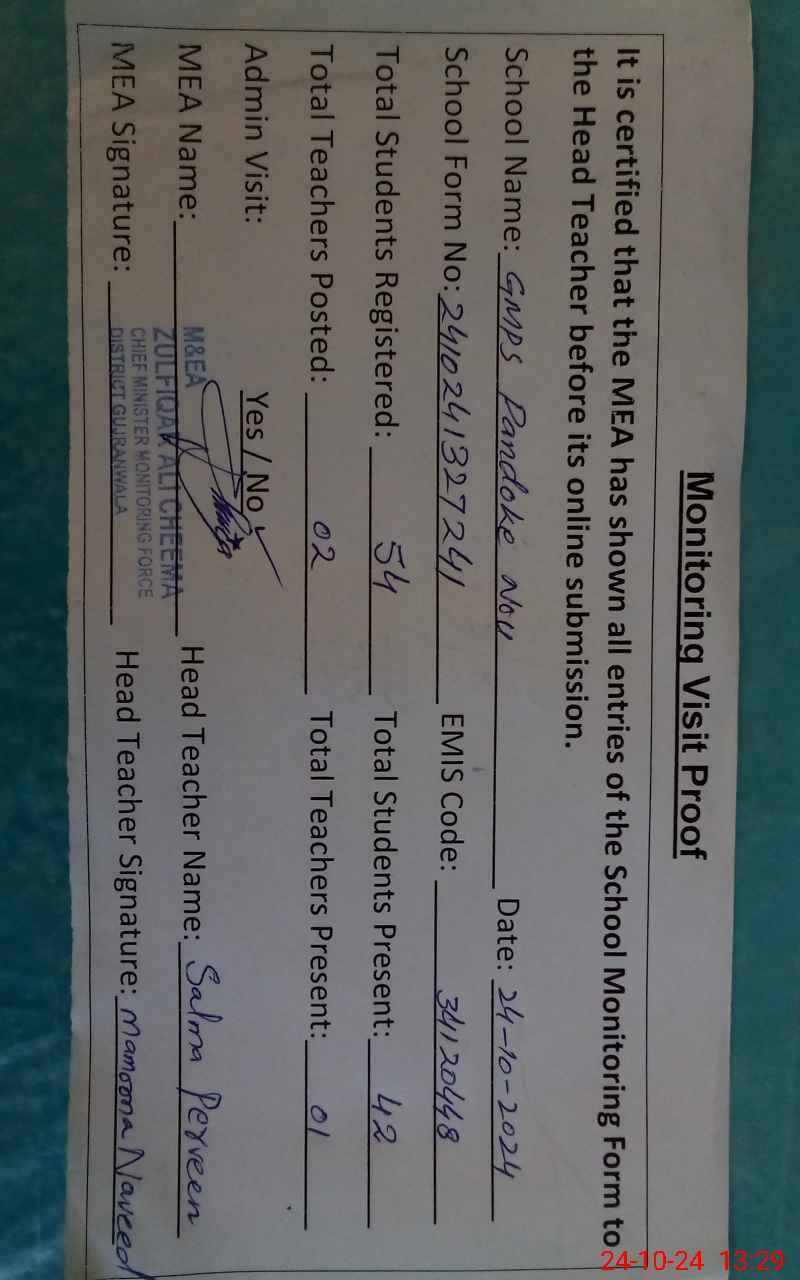 Monitoring Visit Proof
It is certified that the MEA has shown all entries of the School Monitoring Form to
the Head Teacher before its online submission.
School Name: GMPS Pandoke Nou Date: 24-10-2024
School Form No: 2410241327241 EMIS Code: 34120448
Total Students Registered: 54 Total Students Present: 42
Total Teachers Posted: 02 Total Teachers Present: 01
Admin Visit: Yes / No ✓
MEA Name: Head Teacher Name: Salma Perveen
MEA Signature: Head Teacher Signature: Mamoona Naveed
M&EA
ZULFIQAR ALI CHEEMA
CHIEF MINISTER MONITORING FORCE
DISTRICT GUJRANWALA
24-10-24 13:29